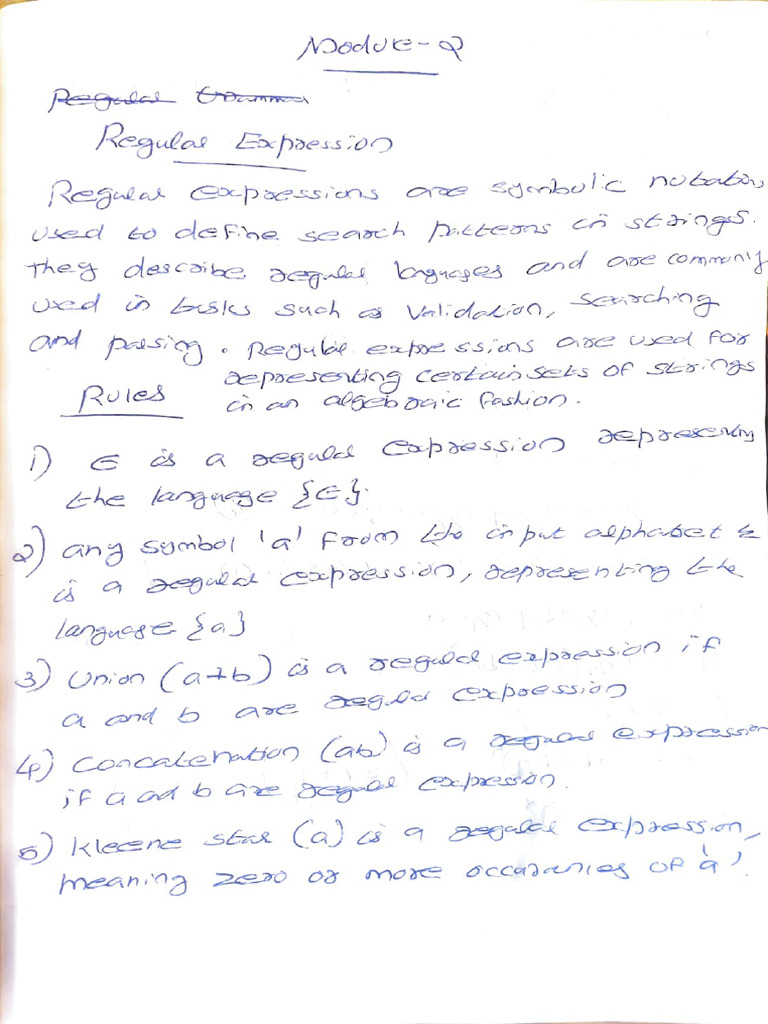 Module-2
Regular Grammar
Regular Expression
Regular expressions are symbolic notation,
used to define search patterns in strings.
they describe regular languages and are commonly
used in tasks such as validation, searching
and parsing. Regular expressions are used for
representing certain sets of strings
in an algebraic fashion.
Rules
1) ∈ is a regular expression representing
the language {∈}.
2) any symbol 'a' from the input alphabet Σ
is a regular expression, representing the
language {a}
3) Union (a+b) is a regular expression if
a and b are regular expression
4) Concatenation (ab) is a regular expression
if a and b are regular expression.
5) Kleene star (a) is a regular expression,
meaning zero or more occurancies of 'a'.